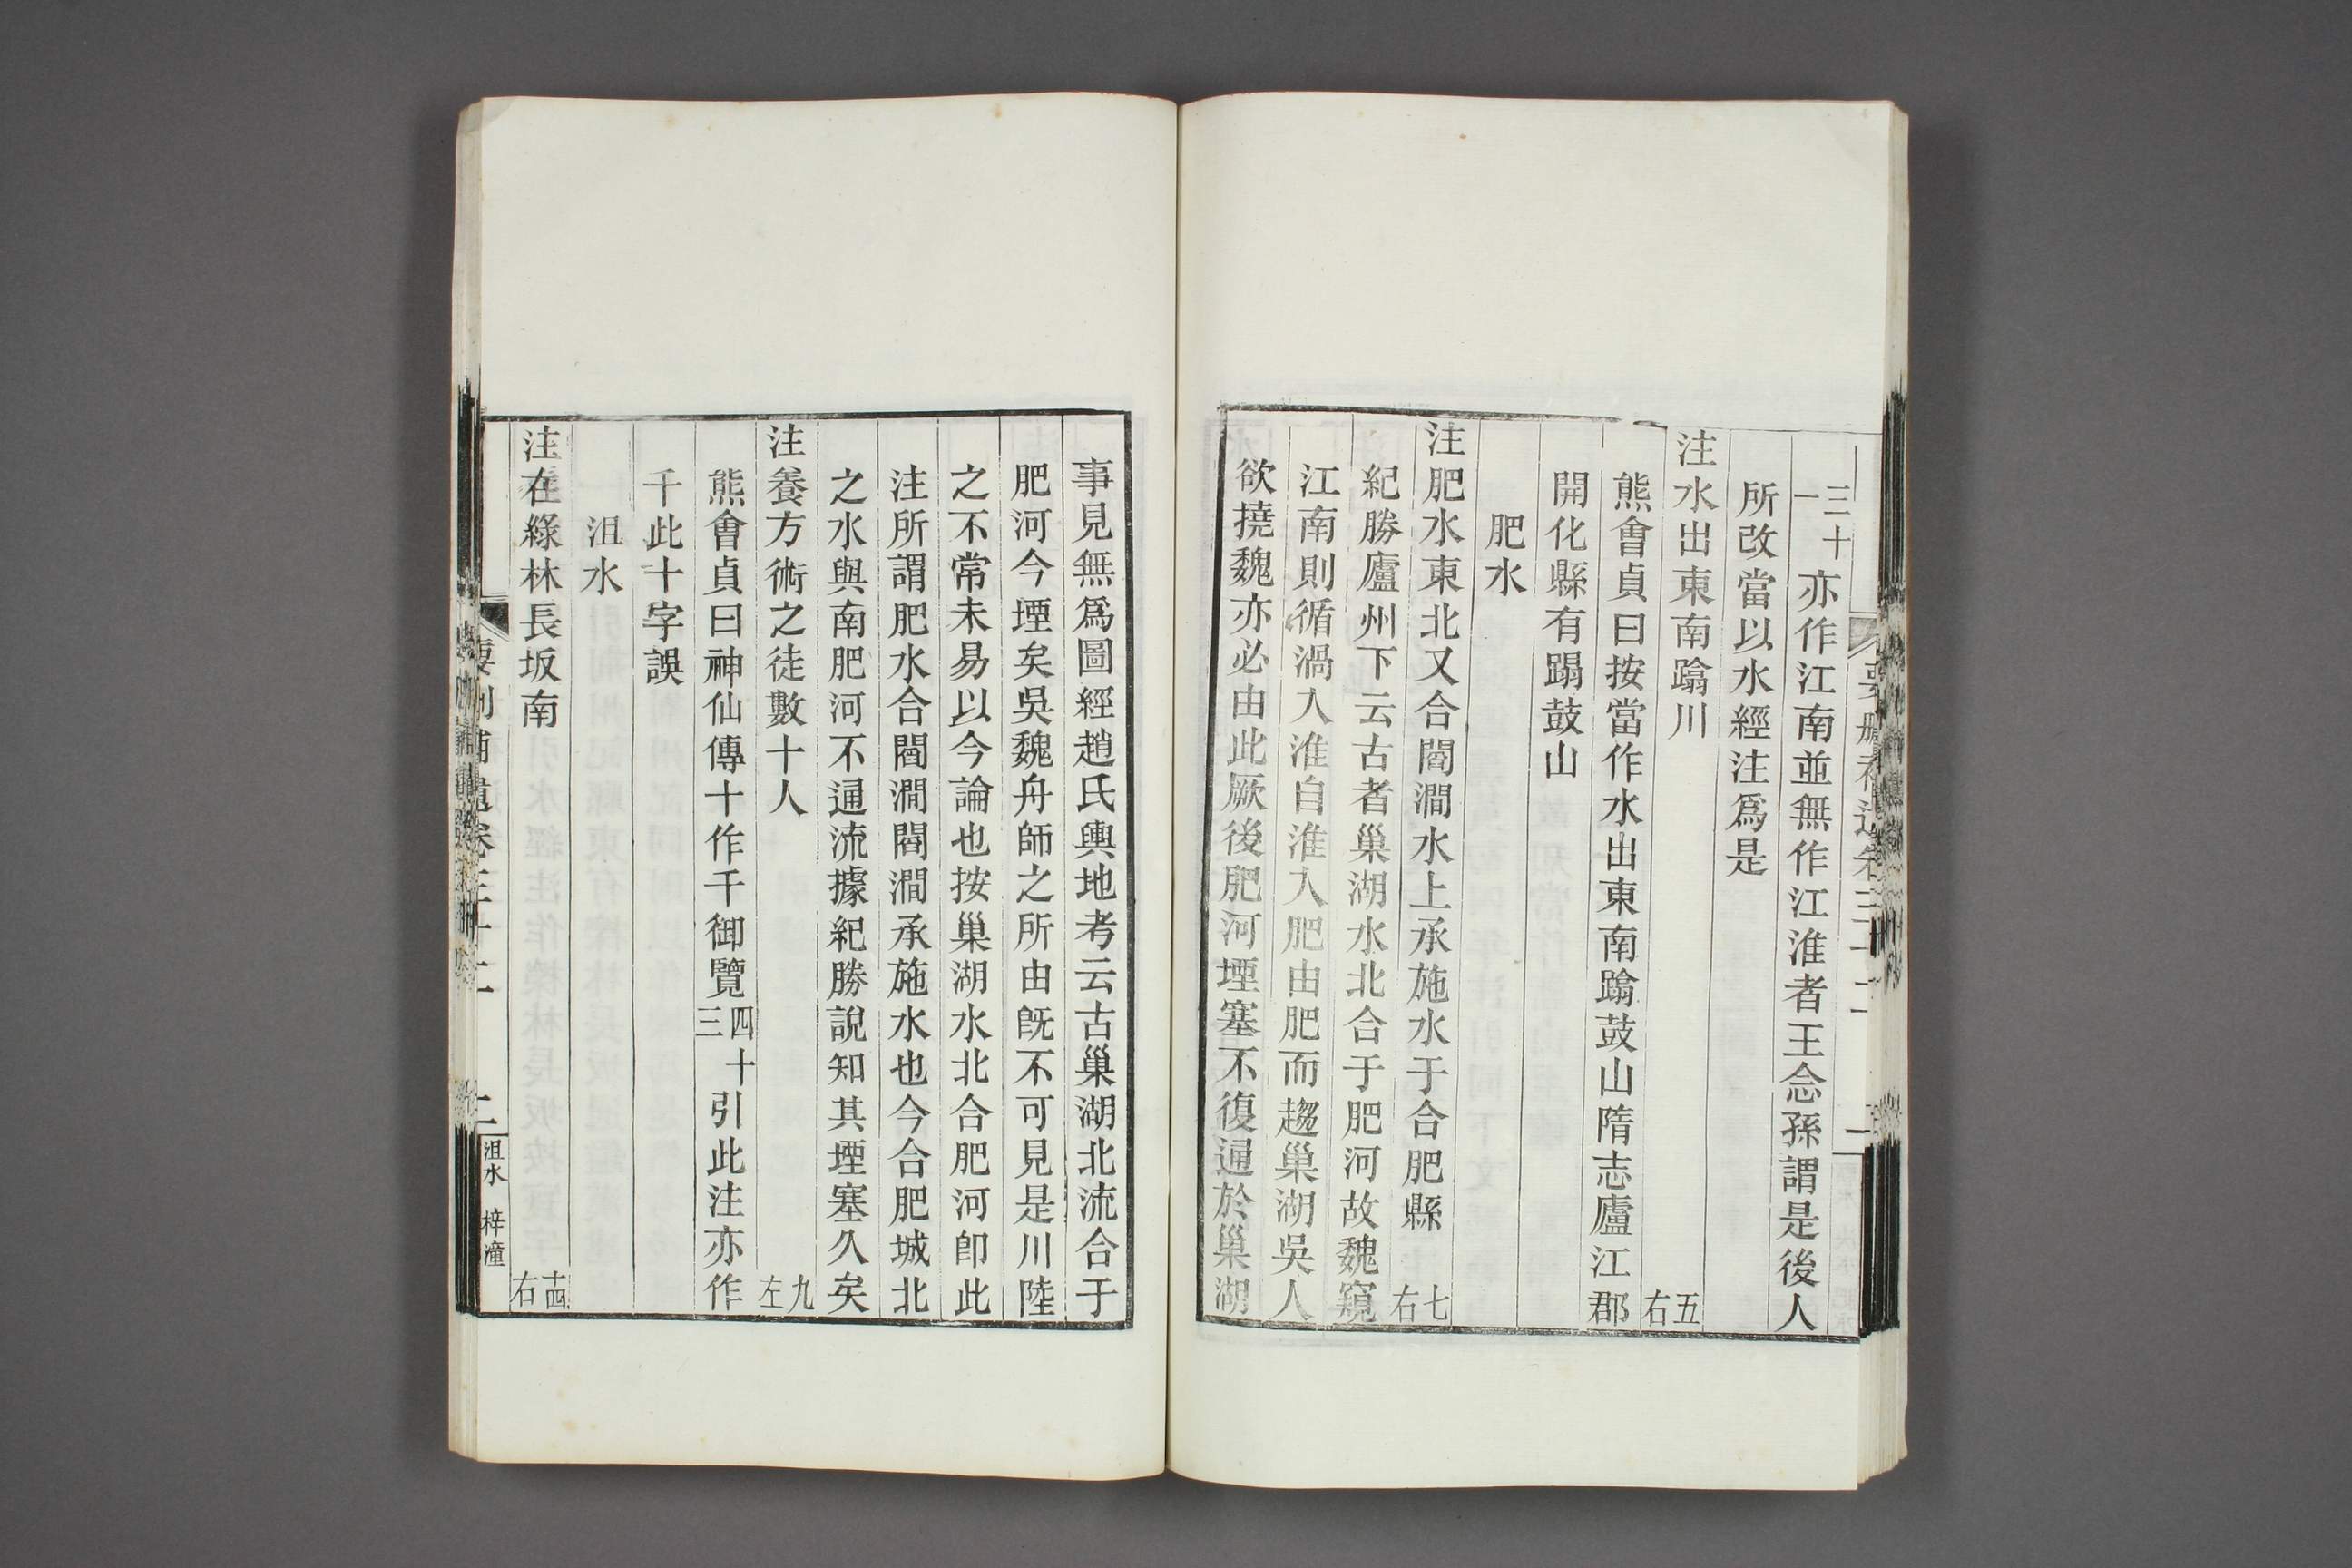 三十一亦作江南並無作江淮者王念孫謂是後人
所改當以水經注爲是
注水出東南踰川 五右
熊會貞曰按當作水出東南踰鼓山隋志廬江郡
開化縣有蹋鼓山
肥水
注肥水東北又合閻澗水上承施水于合肥縣 七右
紀勝廬州下云古者巢湖水北合于肥河故魏窺
江南則循渦入淮自淮入肥由肥而趨巢湖吳人
欲撓魏亦必由此厥後肥河堙塞不復通於巢湖
事見無爲圖經趙氏輿地考云古巢湖北流合于
肥河今堙矣吳魏舟師之所由旣不可見是川陸
之不常未易以今論也按巢湖水北合肥河卽此
注所謂肥水合閻澗閻澗承施水也今合肥城北
之水與南肥河不通流據紀勝說知其堙塞久矣
注養方術之徒數十人 九左
熊會貞曰神仙傳十作千御覽四十三引此注亦作
千此十字誤
沮水
注在綠林長坂南 十四右
要刪補遺卷三十二 二 沮水 梓潼